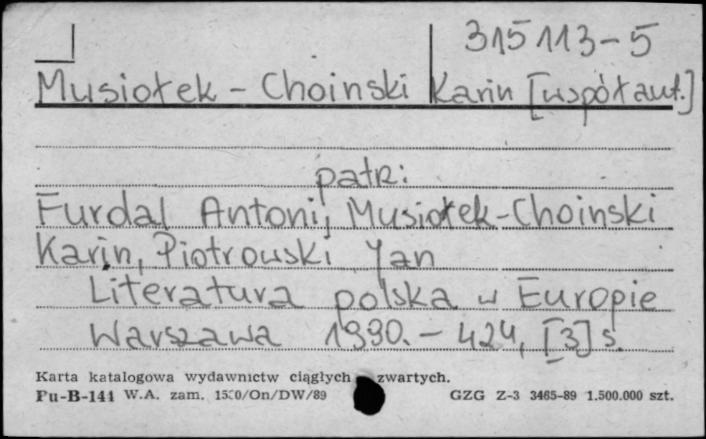 315113-5
Musiołek - Choinski Karin [współaut.]
patrz:
Furdal Antoni, Musiołek-Choinski
Karin, Piotrowski Jan
Literatura polska w Europie
Warszawa 1990. - 424, [3] s.
Karta katalogowa wydawnictw ciągłych zwartych.
Pu-B-141 W.A. zam. 1500/On/DW/89 GZG Z-3 3465-89 1.500.000 szt.